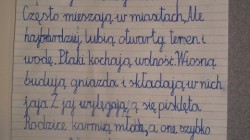 Często mieszają w miastach. Ale
najbardziej lubią otwarty teren i
wodę. Ptaki kochają wolność. Wiosną
budują gniazda i składają w nich
jaja. Z jaj wylęgają się pisklęta
Rodzice karmią młode, a one szybko